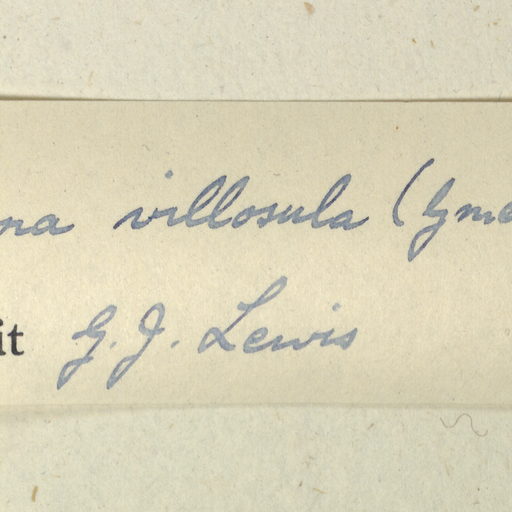 na villosula (Gme
it G. J. Lewis